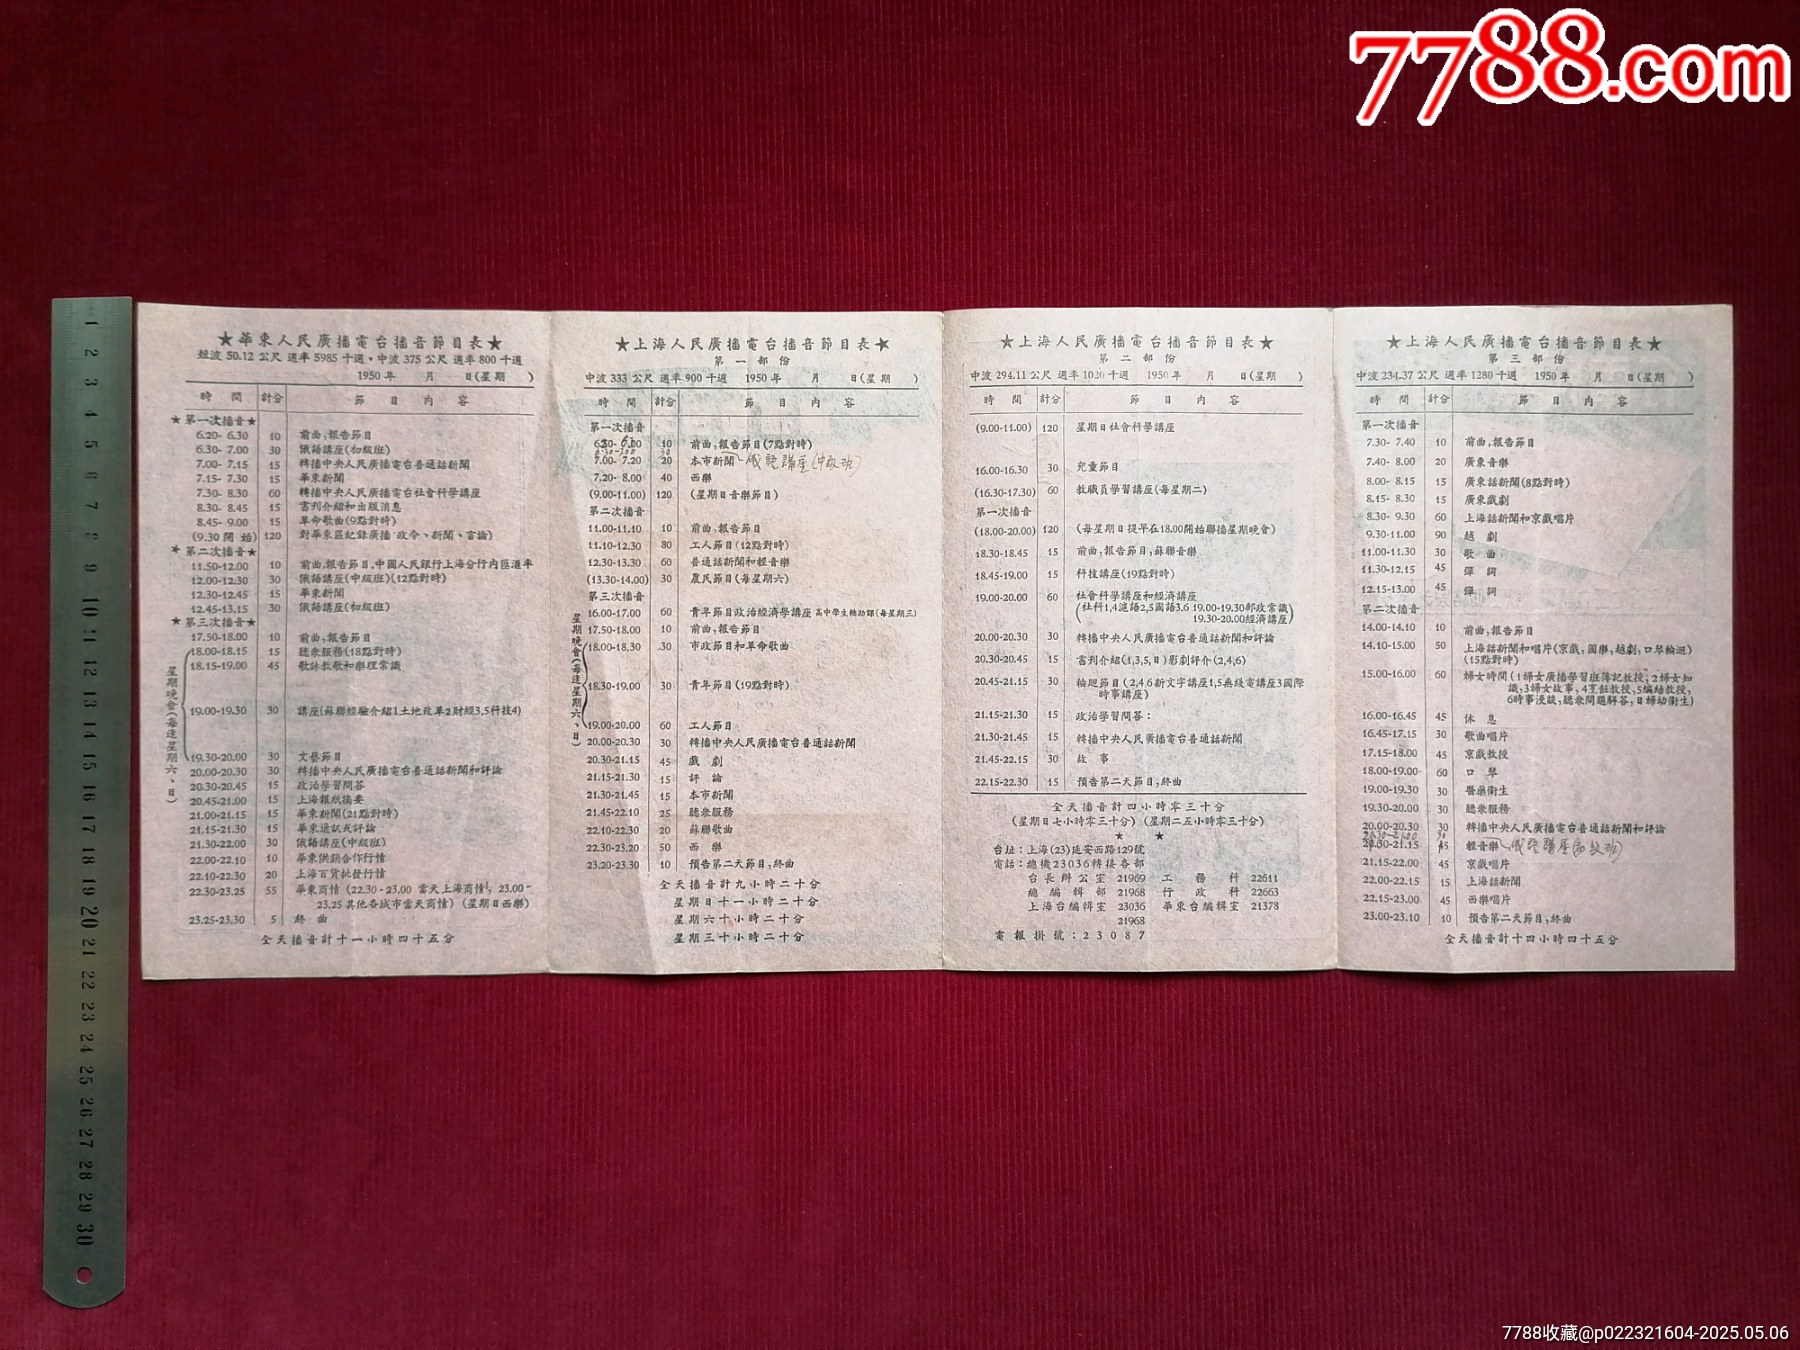 7788.com
★華東人民廣播電台播音節目表★
短波 50.12 公尺 週率 5985 千週・中波 375 公尺 週率 800 千週
1950 年 月 日(星期 )
時 間 計分 節 目 內 容
★第一次播音★
6.20- 6.30 10 前曲,報告節目
6.30- 7.00 30 俄語講座(初級班)
7.00- 7.15 15 轉播中央人民廣播電台普通話新聞
7.15- 7.30 15 華東新聞
7.30- 8.30 60 轉播中央人民廣播電台社會科學講座
8.30- 8.45 15 書刊介紹和出版消息
8.45- 9.00 15 革命歌曲(9點對時)
(9.30 開 始) 120 對華東區紀錄廣播・政令、新聞、言論)
★第二次播音★
11.50-12.00 10 前曲,報告節目,中國人民銀行上海分行內匯滙率
12.00-12.30 30 俄語講座(中級班)(12點對時)
12.30-12.45 15 華東新聞
12.45-13.15 30 俄語講座(初級班)
★第三次播音★
17.50-18.00 10 前曲,報告節目
18.00-18.15 15 聽衆服務(18點對時)
18.15-19.00 45 歌詠教歌和樂理常識
19.00-19.30 30 講座(蘇聯經驗介紹1土地改革2財經3,5科技4)
19.30-20.00 30 文藝節目
20.00-20.30 30 轉播中央人民廣播電台普通話新聞和評論
20.30-20.45 15 政治學習問答
20.45-21.00 15 上海報紙摘要
21.00-21.15 15 華東新聞(21點對時)
21.15-21.30 15 華東通訊或評論
21.30-22.00 30 俄語講座(中級班)
22.00-22.10 10 華東供銷合作行情
22.10-22.30 20 上海百貨批發行情
22.30-23.25 55 華東商情(22.30-23.00 當天上海商情, 23.00-
23.25 其他各城市當天商情)(星期日西樂)
23.25-23.30 5 終 曲
星期晚會(每逢星期六、日)
全天播音計十一小時四十五分
★上海人民廣播電台播音節目表★
第 一 部 份
中波 333 公尺 週率 900 千週 1950 年 月 日(星期 )
時 間 計分 節 目 內 容
第一次播音
6.30- 7.00 10 前曲,報告節目(7點對時)
7.00- 7.20 20 本市新聞 俄語講座(中級班)
7.20- 8.00 40 西樂
(9.00-11.00) 120 (星期日音樂節目)
第二次播音
11.00-11.10 10 前曲,報告節目
11.10-12.30 80 工人節目(12點對時)
12.30-13.30 60 普通話新聞和輕音樂
(13.30-14.00) 30 農民節目(每星期六)
第三次播音
16.00-17.00 60 青年節目政治經濟學講座 高中學生輔助課(每星期三)
17.50-18.00 10 前曲,報告節目
18.00-18.30 30 市政節目和革命歌曲
18.30-19.00 30 青年節目(19點對時)
19.00-20.00 60 工人節目
20.00-20.30 30 轉播中央人民廣播電台普通話新聞
20.30-21.15 45 戲 劇
21.15-21.30 15 評 論
21.30-21.45 15 本市新聞
21.45-22.10 25 聽衆服務
22.10-22.30 20 蘇聯歌曲
22.30-23.20 50 西 樂
23.20-23.30 10 預告第二天節目,終曲
星期晚會(每逢星期六、日)
全天播音計九小時二十分
星期日十一小時二十分
星期六十小時二十分
星期三十小時二十分
★上海人民廣播電台播音節目表★
第 二 部 份
中波 294.11 公尺 週率 1020 千週 1950 年 月 日(星期 )
時 間 計分 節 目 內 容
(9.00-11.00) 120 星期日社會科學講座
16.00-16.30 30 兒童節目
(16.30-17.30) 60 教職員學習講座(每星期二)
第一次播音
(18.00-20.00) 120 (每星期日提早在18.00開始聯播星期晚會)
18.30-18.45 15 前曲,報告節目,蘇聯音樂
18.45-19.00 15 科技講座(19點對時)
19.00-20.00 60 社會科學講座和經濟講座
(社科1,4滬語2,5國語3,6 19.00-19.30郵政常識
19.30-20.00經濟講座)
20.00-20.30 30 轉播中央人民廣播電台普通話新聞和評論
20.30-20.45 15 書刊介紹(1,3,5,日)影劇評介(2,4,6)
20.45-21.15 30 輪迴節目(2,4,6新文字講座1,5無綫電講座3國際
時事講座)
21.15-21.30 15 政治學習問答:
21.30-21.45 15 轉播中央人民廣播電台普通話新聞
21.45-22.15 30 故 事
22.15-22.30 15 預告第二天節目,終曲
全天播音計四小時零三十分
(星期日七小時零三十分)(星期二五小時零三十分)
★ ★
台址:上海(23)延安西路129號
電話:總機23036轉接各部
台長辦公室 21969 工 務 科 22611
總 編 輯 部 21968 行 政 科 22663
上海台編輯室 23036 華東台編輯室 21378
21968
電報掛號:23087
★上海人民廣播電台播音節目表★
第 三 部 份
中波 234.37 公尺 週率 1280 千週 1950 年 月 日(星期 )
時 間 計分 節 目 內 容
第一次播音
7.30- 7.40 10 前曲,報告節目
7.40- 8.00 20 廣東音樂
8.00- 8.15 15 廣東話新聞(8點對時)
8.15- 8.30 15 廣東戲劇
8.30- 9.30 60 上海話新聞和京戲唱片
9.30-11.00 90 越 劇
11.00-11.30 30 歌 曲
11.30-12.15 45 彈 詞
12.15-13.00 45 彈 詞
第二次播音
14.00-14.10 10 前曲,報告節目
14.10-15.00 50 上海話新聞和唱片(京戲,國樂,越劇,口琴輪迴)
(15點對時)
15.00-16.00 60 婦女時間(1婦女廣播學習班簿記教授;2婦女知
識,3婦女故事,4烹飪教授,5編結教授,
6時事漫談,聽衆問題解答,日婦幼衛生)
16.00-16.45 45 休 息
16.45-17.15 30 歌曲唱片
17.15-18.00 45 京戲教授
18.00-19.00 60 口 琴
19.00-19.30 30 醫藥衛生
19.30-20.00 30 聽衆服務
20.00-20.30 30 轉播中央人民廣播電台普通話新聞和評論
20.30-21.00 30
20.30-21.15 45 輕音樂 俄語講座(初級班)
21.15-22.00 45 京戲唱片
22.00-22.15 15 上海話新聞
22.15-23.00 45 西樂唱片
23.00-23.10 10 預告第二天節目,終曲
全天播音計十四小時四十五分
1 2 3 4 5 6 7 8 9 10 11 12 13 14 15 16 17 18 19 20 21 22 23 24 25 26 27 28 29 30
7788收藏@p022321604-2025.05.06